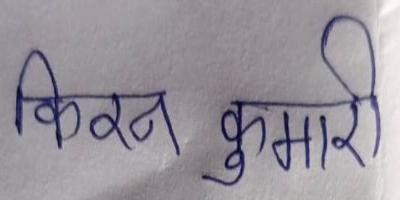 किरन कुमारी